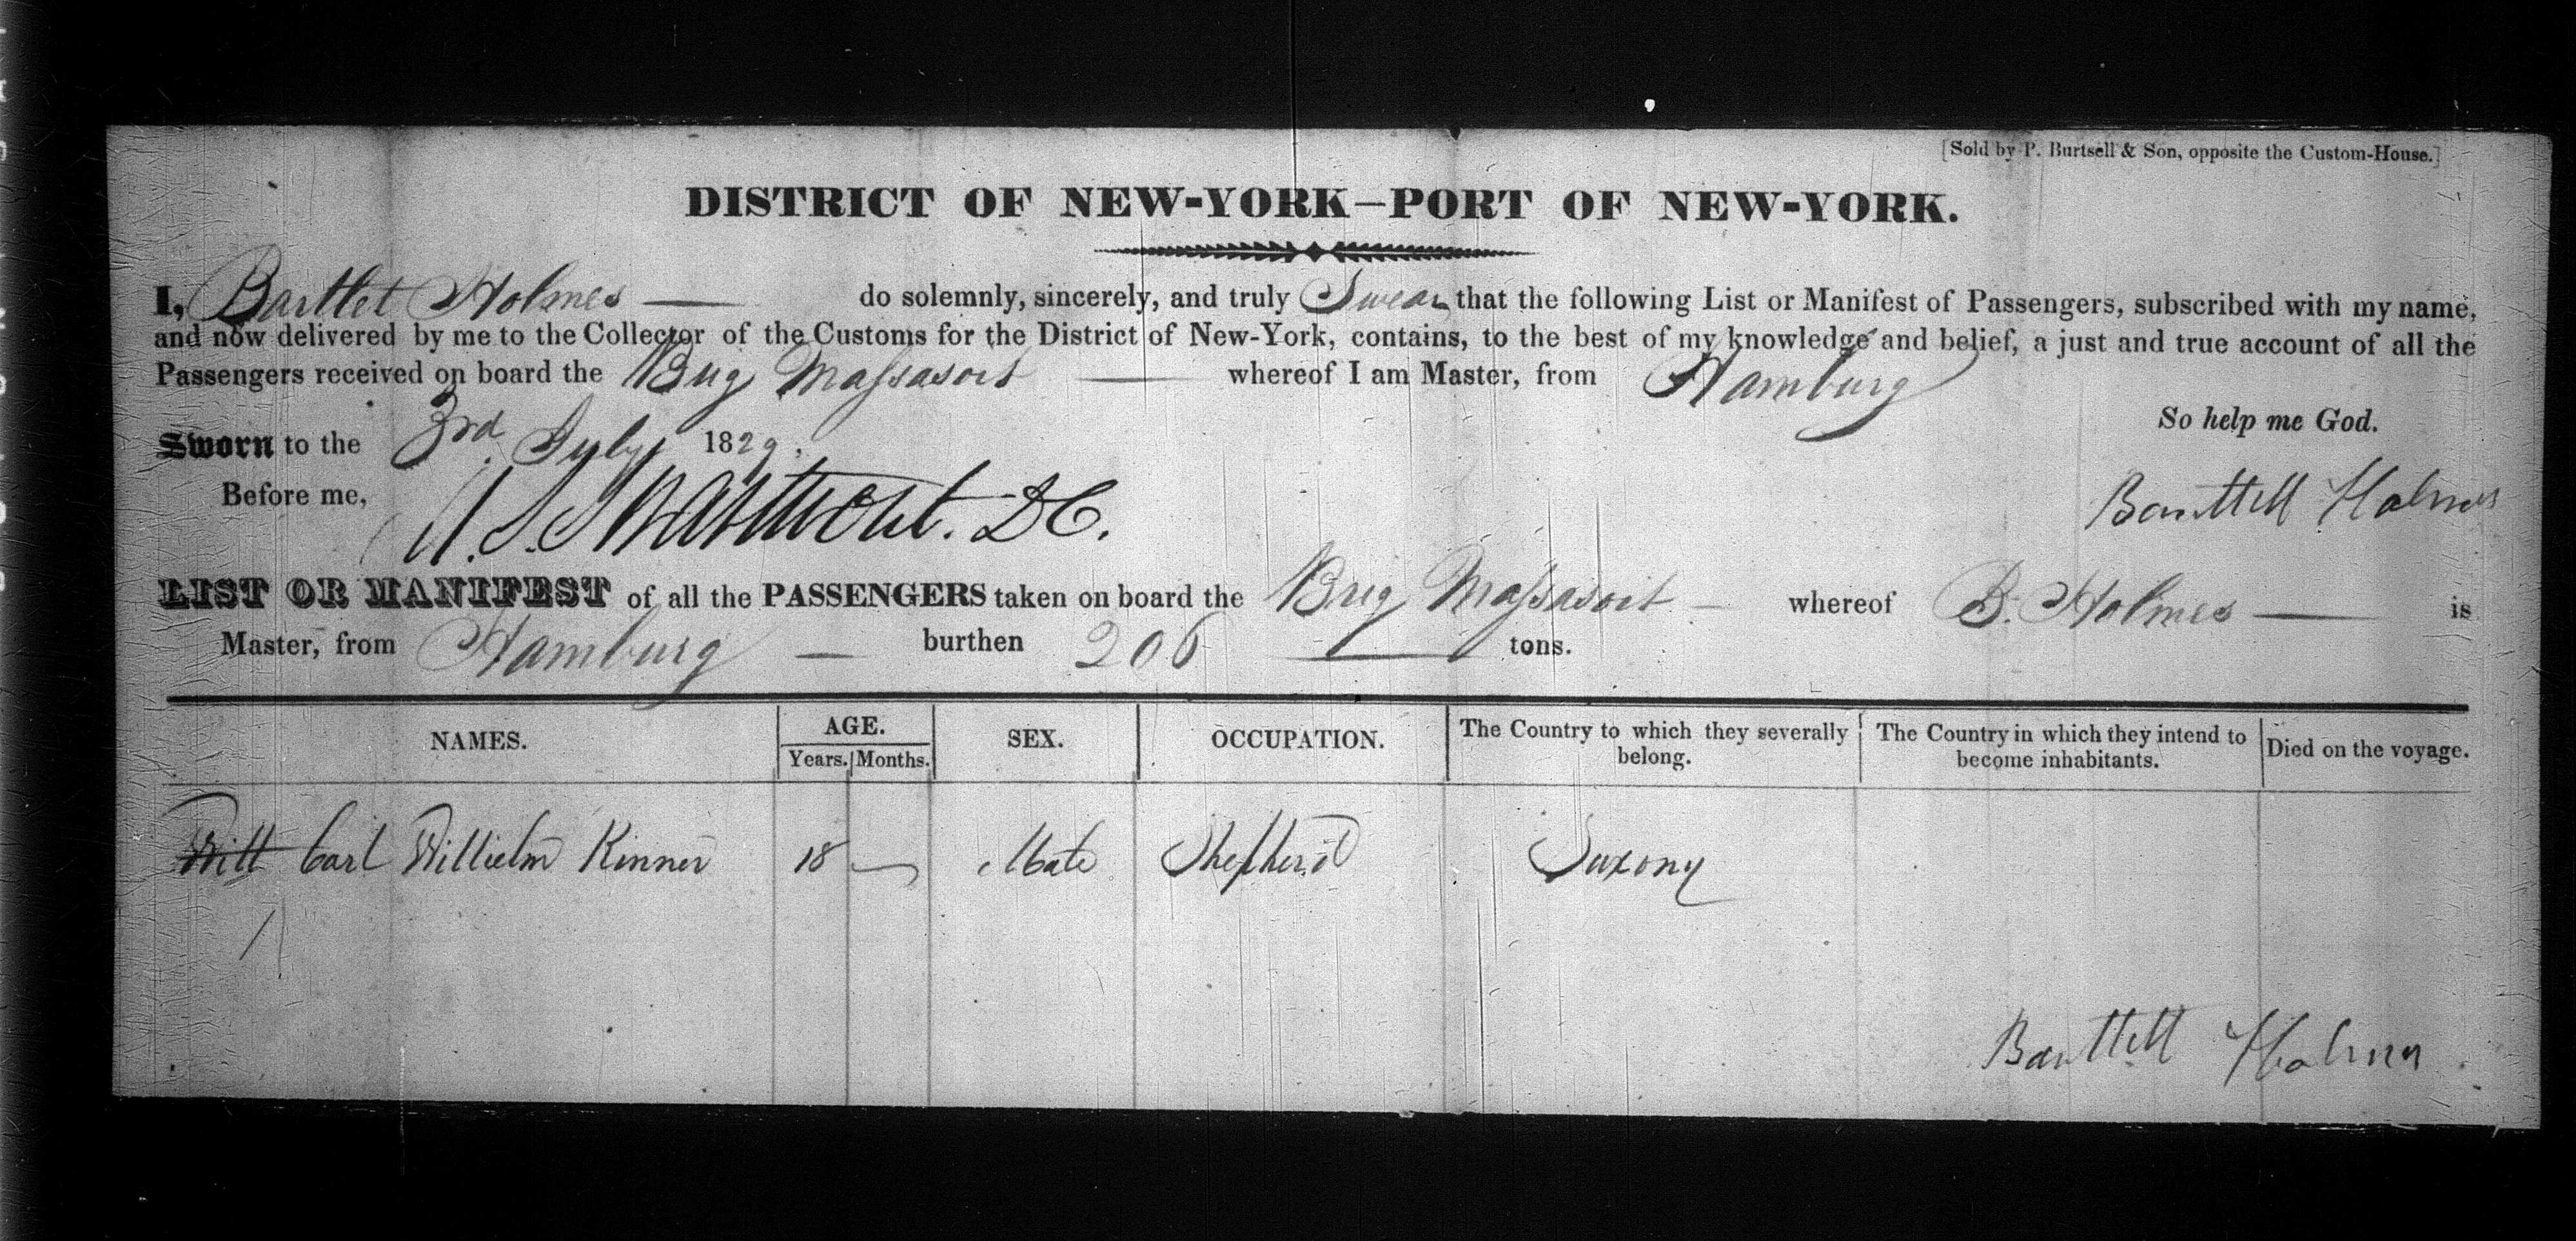 [Sold by P. Burtsell & Son, opposite the Custom-House.]
DISTRICT OF NEW-YORK—PORT OF NEW-YORK.
I, Bartlet Holmes — do solemnly, sincerely, and truly Swear that the following List or Manifest of Passengers, subscribed with my name,
and now delivered by me to the Collector of the Customs for the District of New-York, contains, to the best of my knowledge and belief, a just and true account of all the
Passengers received on board the Brig Massasoit — whereof I am Master, from Hamburg
So help me God.
Sworn to the 3rd July 1829.
Before me, D.C.
Barttell Holmes
LIST OR MANIFEST of all the PASSENGERS taken on board the Brig Massasoit — whereof B. Holmes — is
Master, from Hamburg — burthen 206 — tons.
NAMES. AGE. SEX. OCCUPATION. The Country to which they severally belong. The Country in which they intend to become inhabitants. Died on the voyage.
Years. Months.
Carl Wilhelm Kinner 18 — Male Shepherd Saxony
Barttell Holmes